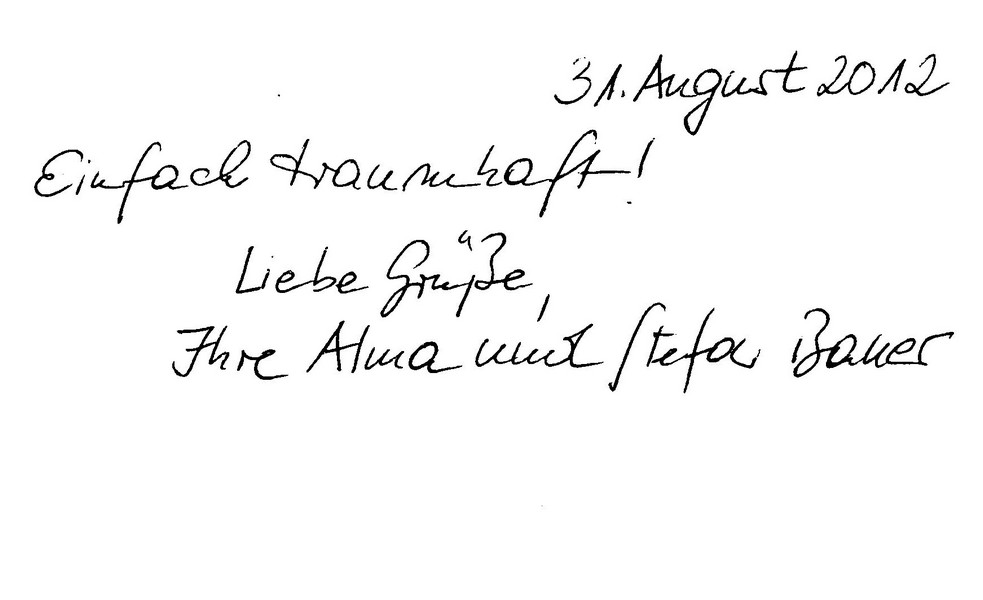 31. August 2012
Einfach traumhaft!
Liebe Grüße,
Ihre Alma und Stefan Bauer